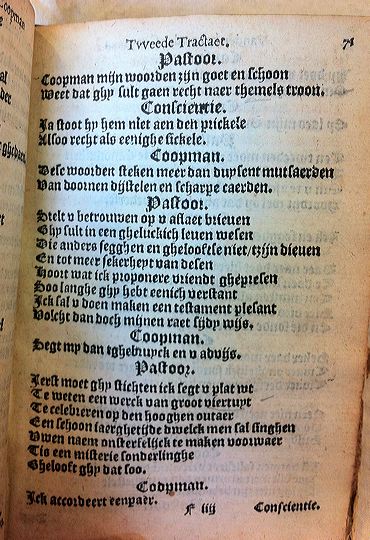 Tweede Tractaet. 71
Pastoor.
Coopman mijn woorden zijn goet en schoon
Weet dat ghy sult gaen recht naer themels troon.
Conscientie.
Ja stoot hy hem niet aen den prickele
Alsoo recht als eenighe sickele.
Coopman.
Dese woorden steken meer dan duysent mutsaerden
Van doornen dijstelen en scharpe caerden.
Pastoor.
Stelt v betrouwen op v aflaet brieuen
Ghy sult in een gheluckich leuen wesen
Die anders segghen en ghelooftse niet/tzijn dieuen
En tot meer sekerheyt van desen
Hoort wat ick proponere vriendt ghepresen
Soo langhe ghy hebt eenich verstant
Ick sal v doen maken een testament plesant
Volcht dan doch mijnen raet sijdy wijs.
Coopman.
Segt my dan tghebruyck en v advijs.
Pastoor.
Ierst moet ghy stichten ick segt v plat wt
Te weten een werck van groot viertuyt
Te celebreren op den hooghen outaer
Een schoon iaerghetijde dwelck men sal singhen
Uwen naem onsterfelijck te maken voorwaer
Tis een misterie sonderlinghe
Ghelooft ghy dat soo.
Coopman.
Ick accordeert eenpaer.
F iij Conscientie.